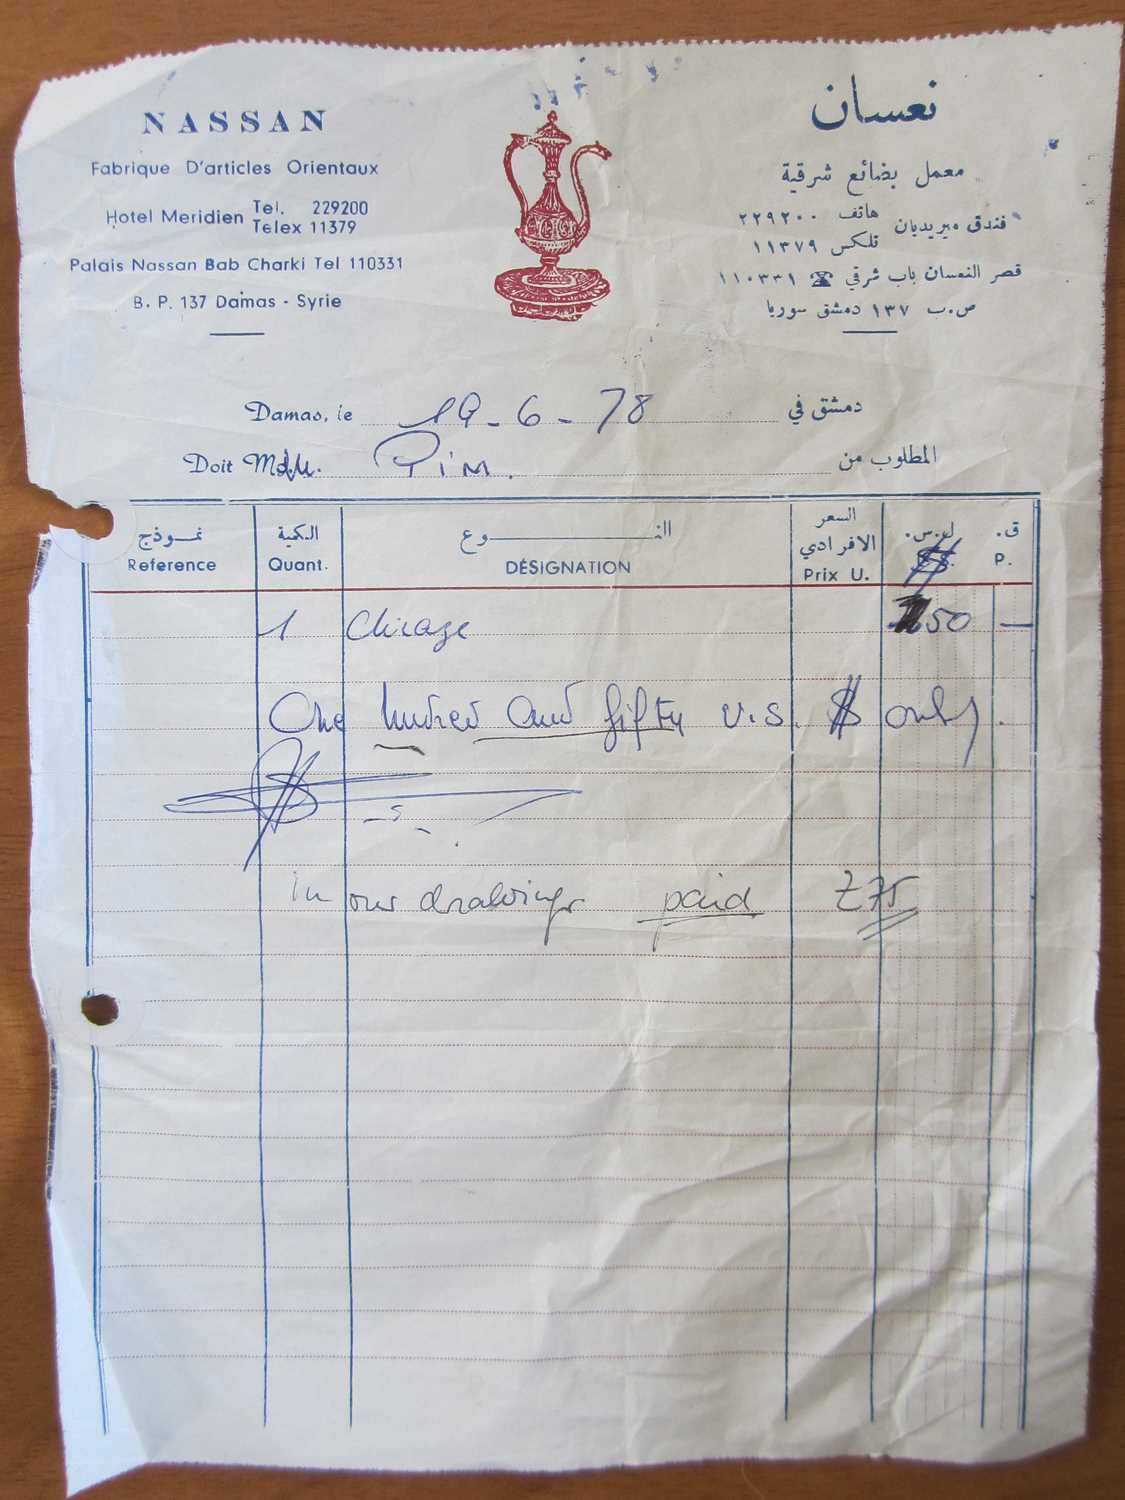 NASSAN
Fabrique D'articles Orientaux
Hotel Meridien Tel. 229200
Telex 11379
Palais Nassan Bab Charki Tel 110331
B. P. 137 Damas - Syrie
نعسان
معمل بضائع شرقية
فندق ميريديان هاتف ٢٢٩٢٠٠
تلكس ١١٣٧٩
قصر النعسان باب شرقي ☎ ١١٠٣٣١
ص.ب ١٣٧ دمشق سوريا
Damas, le 19-6-78 دمشق في
Doit Pim. المطلوب من
نمـوذج الكمية النـوع السعر الافرادي ل.س. ق.
Reference Quant. DÉSIGNATION Prix U. $ P.
1 Chiraze 150 —
One hundred and fifty U.S. $ only.
in our drawings paid £75